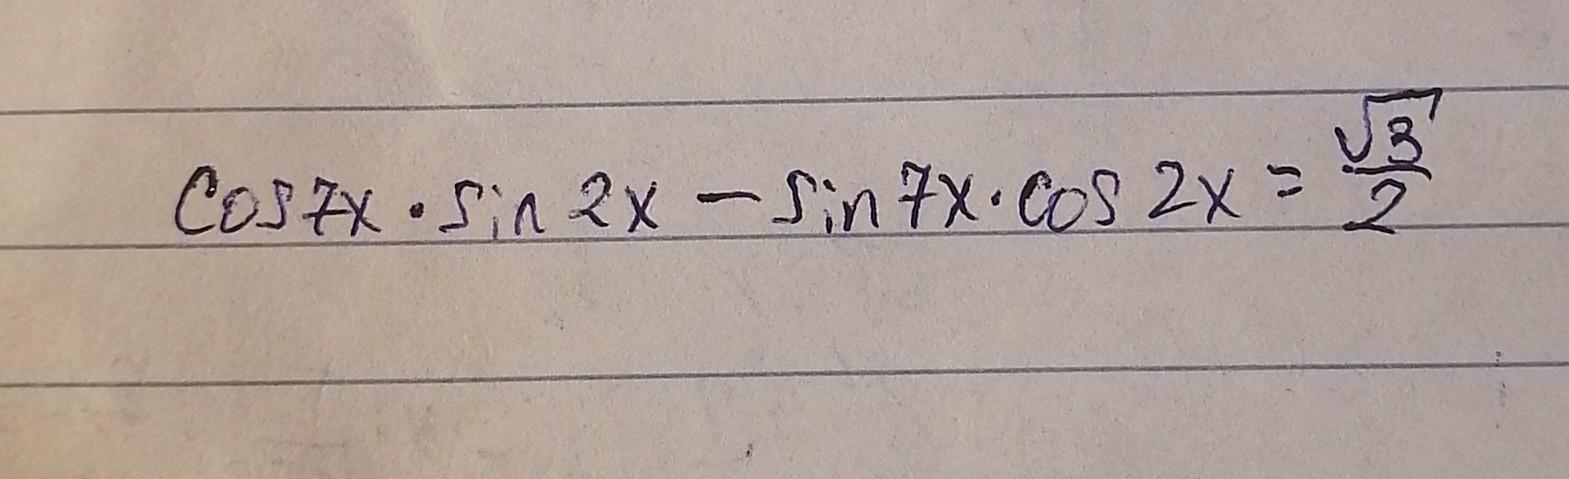 cos7x · sin 2x − sin7x · cos 2x = √3/2